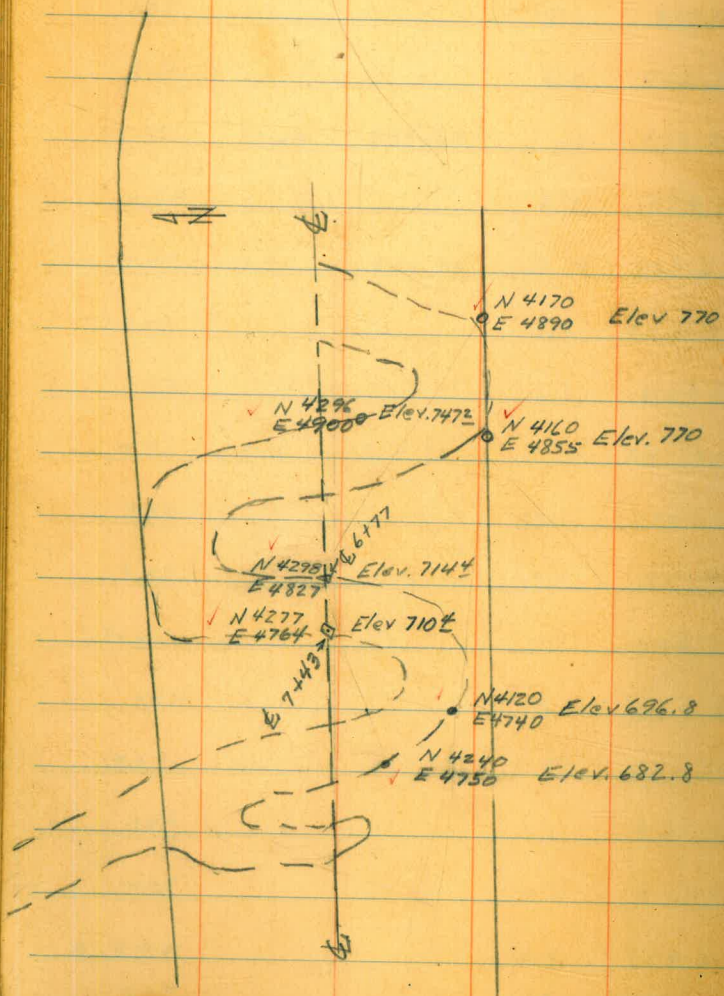 N
℄
N 4170
E 4890 Elev 770
N 4296
E 4900 Elev. 747²
N 4160
E 4855 Elev. 770
℄ 6+77
N 4298
E 4827 Elev. 714⁴
N 4277
E 4764 Elev 710⁴
℄ 7+43
N4120
E4740 Elev 696.8
N 4240
E 4750 Elev. 682.8
℄